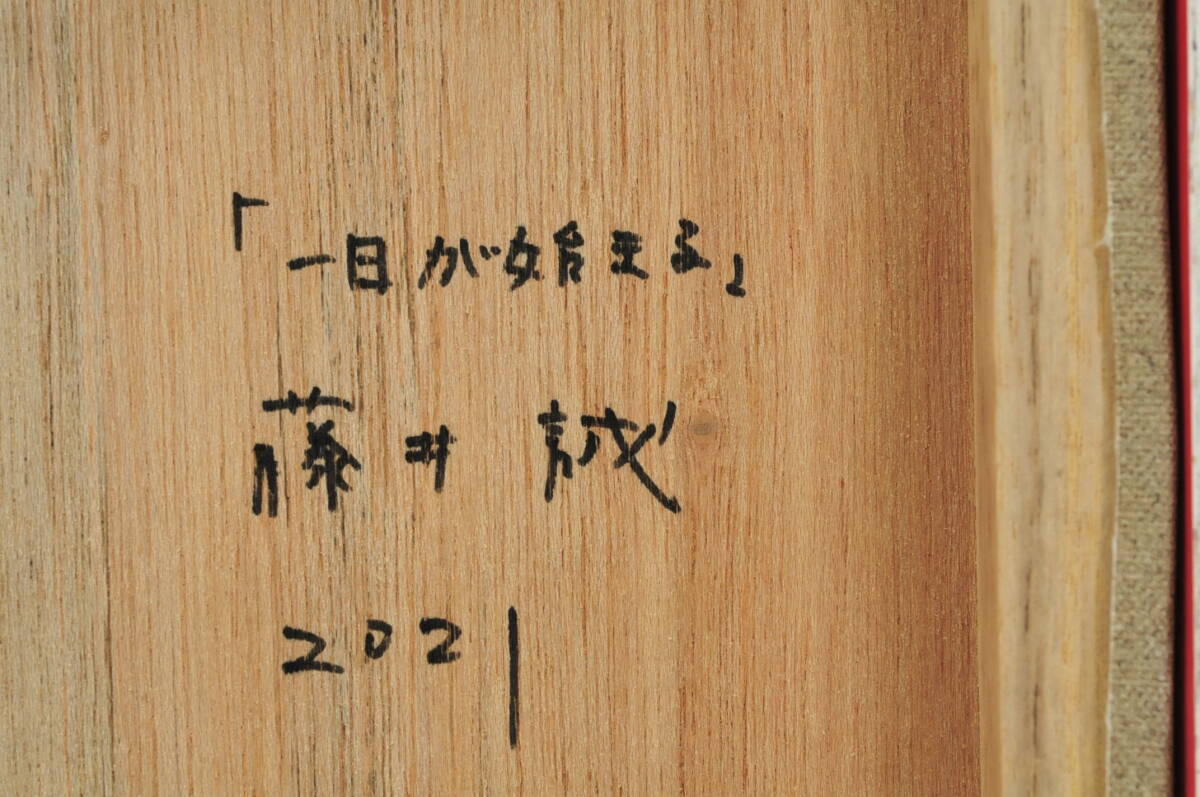 「一日が始まる」
藤井 誠
2021